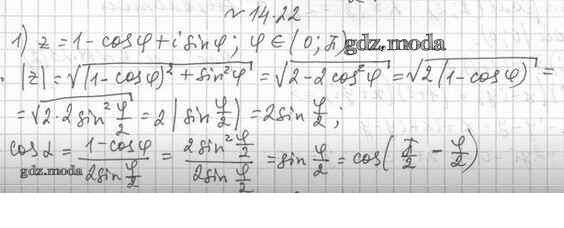 ~ 14.22
1) z = 1 - cosφ + i sinφ; φ ∈ (0; π) gdz.moda
|z| = √((1 - cosφ)² + sin²φ) = √(2 - 2cos²φ) = √(2(1 - cosφ)) =
= √(2·2sin² φ/2) = 2|sin φ/2| = 2sin φ/2;
cos α = (1 - cosφ)/(2sin φ/2) = (2sin² φ/2)/(2sin φ/2) = sin φ/2 = cos(π/2 - φ/2)
gdz.moda